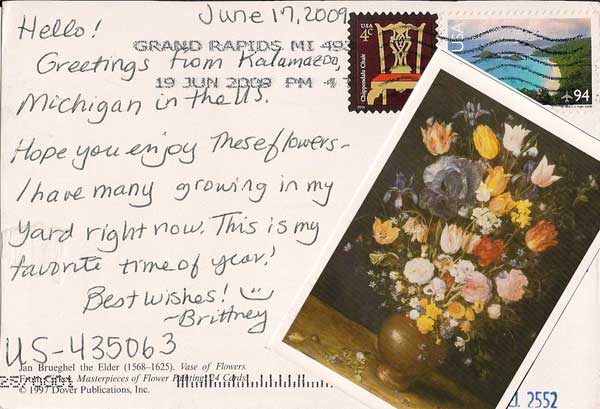 June 17, 2009
Hello!
Greetings from Kalamazoo,
Michigan in the US.
Hope you enjoy these flowers-
I have many growing in my
yard right now. This is my
favorite time of year!
Best wishes!
~Brittney
US-435063
GRAND RAPIDS MI 493
19 JUN 2009 PM 4
USA
4c
Chippendale Chair
USA
94
Jan Brueghel the Elder (1568–1625). Vase of Flowers.
Masterpieces of Flower Painting: 24 Cards.
© 1997 Dover Publications, Inc.
2552